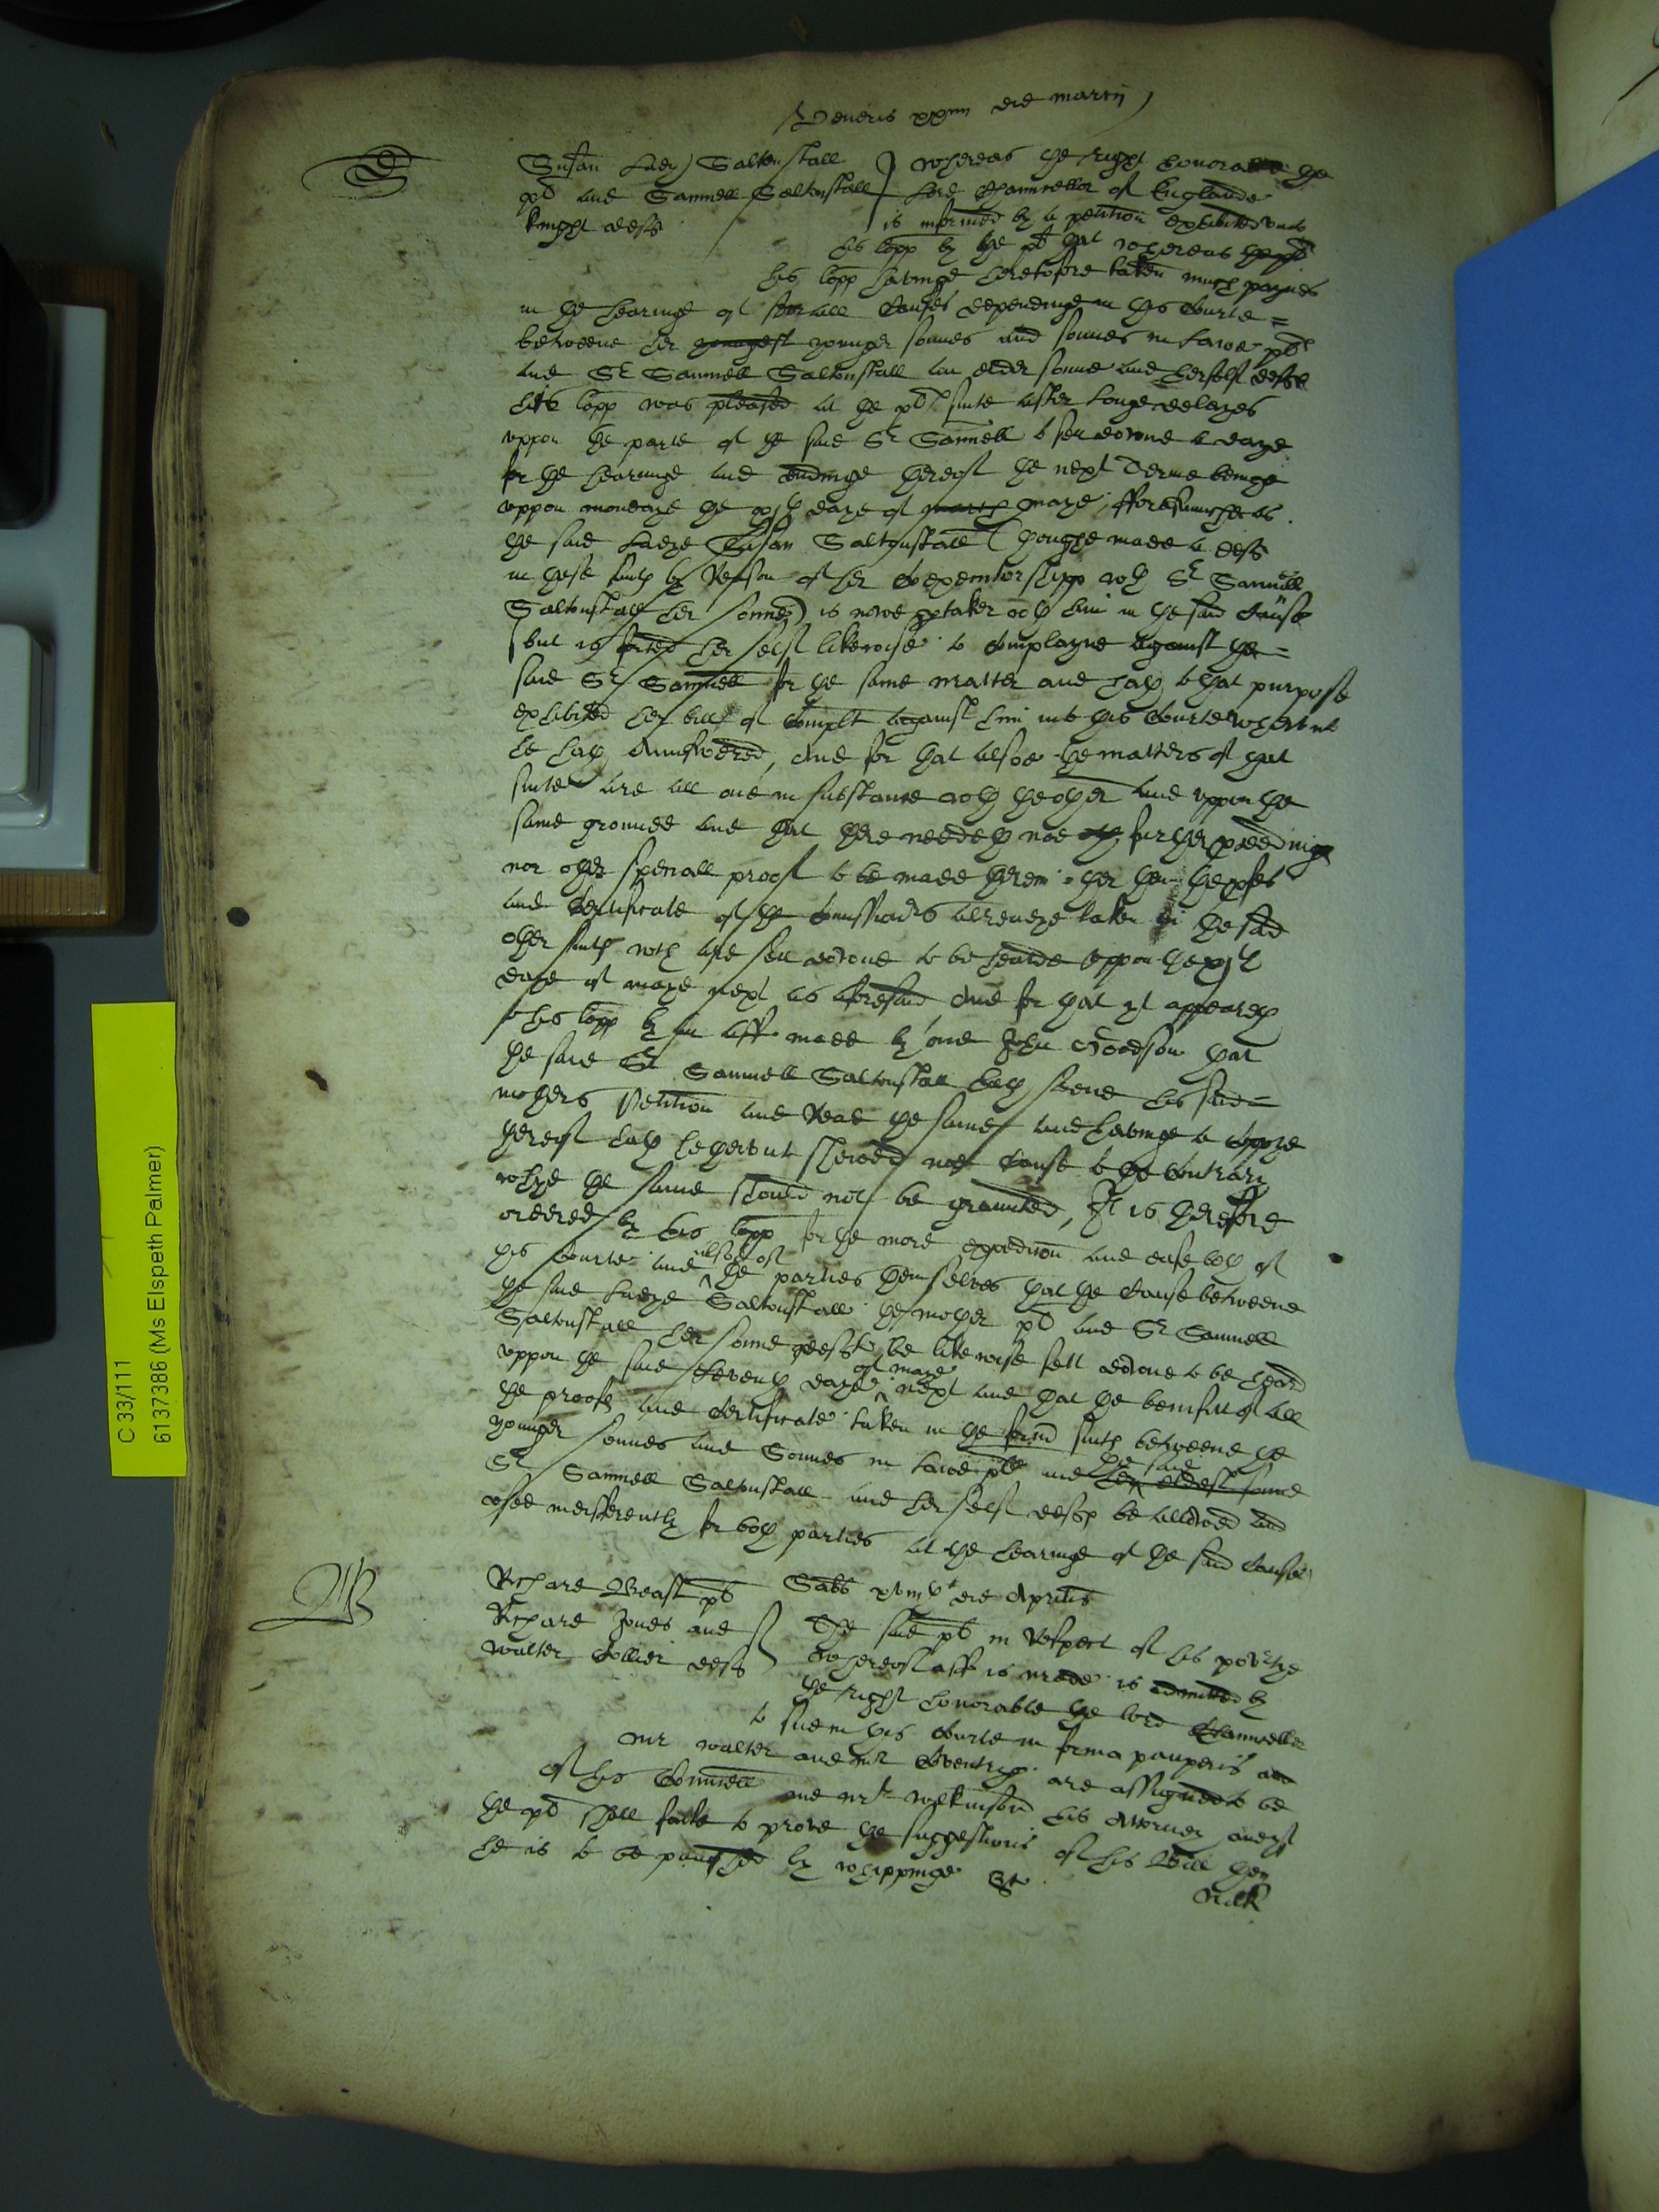 Veneris xxiiij die martij
S
Susan Lady Saltonstall
plt and Samuell Saltonstall
knight defts
whereas the right honorable the
Lord Chauncellor of Englande
is informed by a peticion exhibited unto
his lopp by the plt that whereas
his lopp havinge heretofore taken much paynes
in the hearinge of severall Causes dependinge in this Courte =
betweene her youngest younger sonnes and sonnes in Lawe plts
and Sr Samuell Saltonstall an elder sonne and herselfe defts
his lopp was pleased at the plts suite after longe delayes
uppon the parte of the said Sr Samuell to sett downe a daye
for the hearinge and endinge thereof the next Terme beinge
uppon mondaye the xjth daye of march maye, fforasmuch as
the said Ladye Susan Saltonstall (though made a deft
in these suits by Reason of her Coexecutorshipp wth Sr Samuell
Saltonstall her sonne) is nowe ptaker wth him in the said cause
but is forced her selfe likewise to Complayne against the =
said Sr Samuell for the same matter and hath to that purpose
exhibited her bill of Complt against him into this Courte wherunto
he hath Aunswered, And for that alsoe the matters of that
suite are all one in substance wth the other and uppon the
same grounde and that there needeth noe oth further pceedings
nor other speciall proofe to be made therein other then the
and Certificate of the Comissioners alreadye taken in the said
other suits wch are sett downe to be heard uppon the xjth
daye of maye next as aforesaid, And for that yt appeareth
to his lopp by an aff made by one John Goodson that
the said Sr Samuell Saltonstall hath seene his said =
mothers Peticion and Read the same and havinge a Coppye
thereof hath he therunto shewed noe Cause to the Contrary
whye the same should not be graunted, It is therefore
ordered by his lopp for the more expedicion and ease both of
this Courte and alsoe of the parties themselves that the Cause betweene
the said Ladye Saltonstall the mother plt and Sr Samuell
Saltonstall her sonne deft be likewise sett downe to be heard
uppon the said eleventh daye of maye next and that the benifitt of all
the proofes and Certificate taken in the said suits betweene the
younger sonnes and Sonnes in Lawe plts and the said her eldest sonne
Sr Samuell Saltonstall and her selfe defts be allowed and
used indifferently for both parties at the hearinge of the said Cause
Richard Beast plt
Richard Jones and
Walter Collier defts
Sabbi die Aprilis
The said plt in Respect of his povertye
whereof aff is made is admitted by
the right honorable the lord Chauncellor
to sue in this Courte in forma pauperis and
mr walter and mr Coventrye are assigned to be
of his Counsell and mr wilkinson his Attorney and yf
the plt shall faile to prove the suggestions of his Bill then
he is to be punished by whippinge &c
C 33/111
61373​86 (Ms Elspeth Palmer)